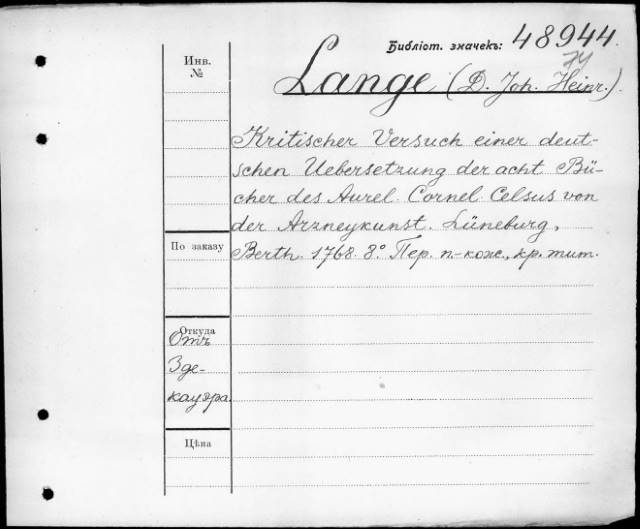 Библіот. значекъ: 48944.
74
Инв.
№
Lange (D. Joh. Heinr.).
Kritischer Versuch einer deut-
schen Uebersetzung der acht Bü-
cher des Aurel. Cornel. Celsus von
der Arzneykunst. Lüneburg,
По заказу
Berth. 1768. 8° Пер. п.-кож., кр. тит.
Откуда
Отъ
Зде-
кауэра.
Цѣна